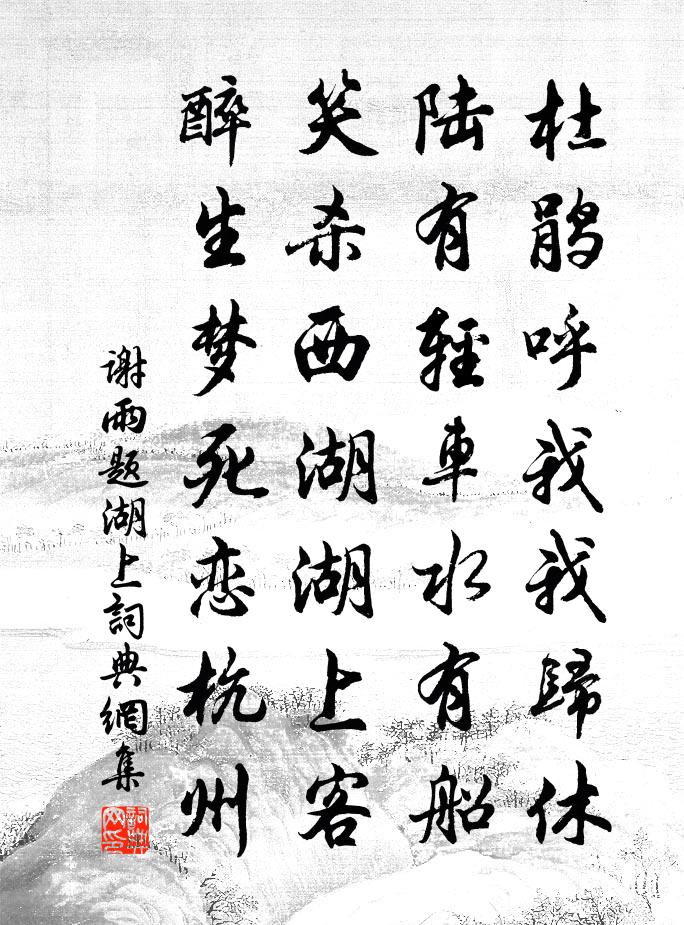 杜鹃呼我我歸休
陆有輕車水有船
笑杀西湖湖上客
醉生梦死恋杭州
谢雨题湖上詞典網集
詞典网印